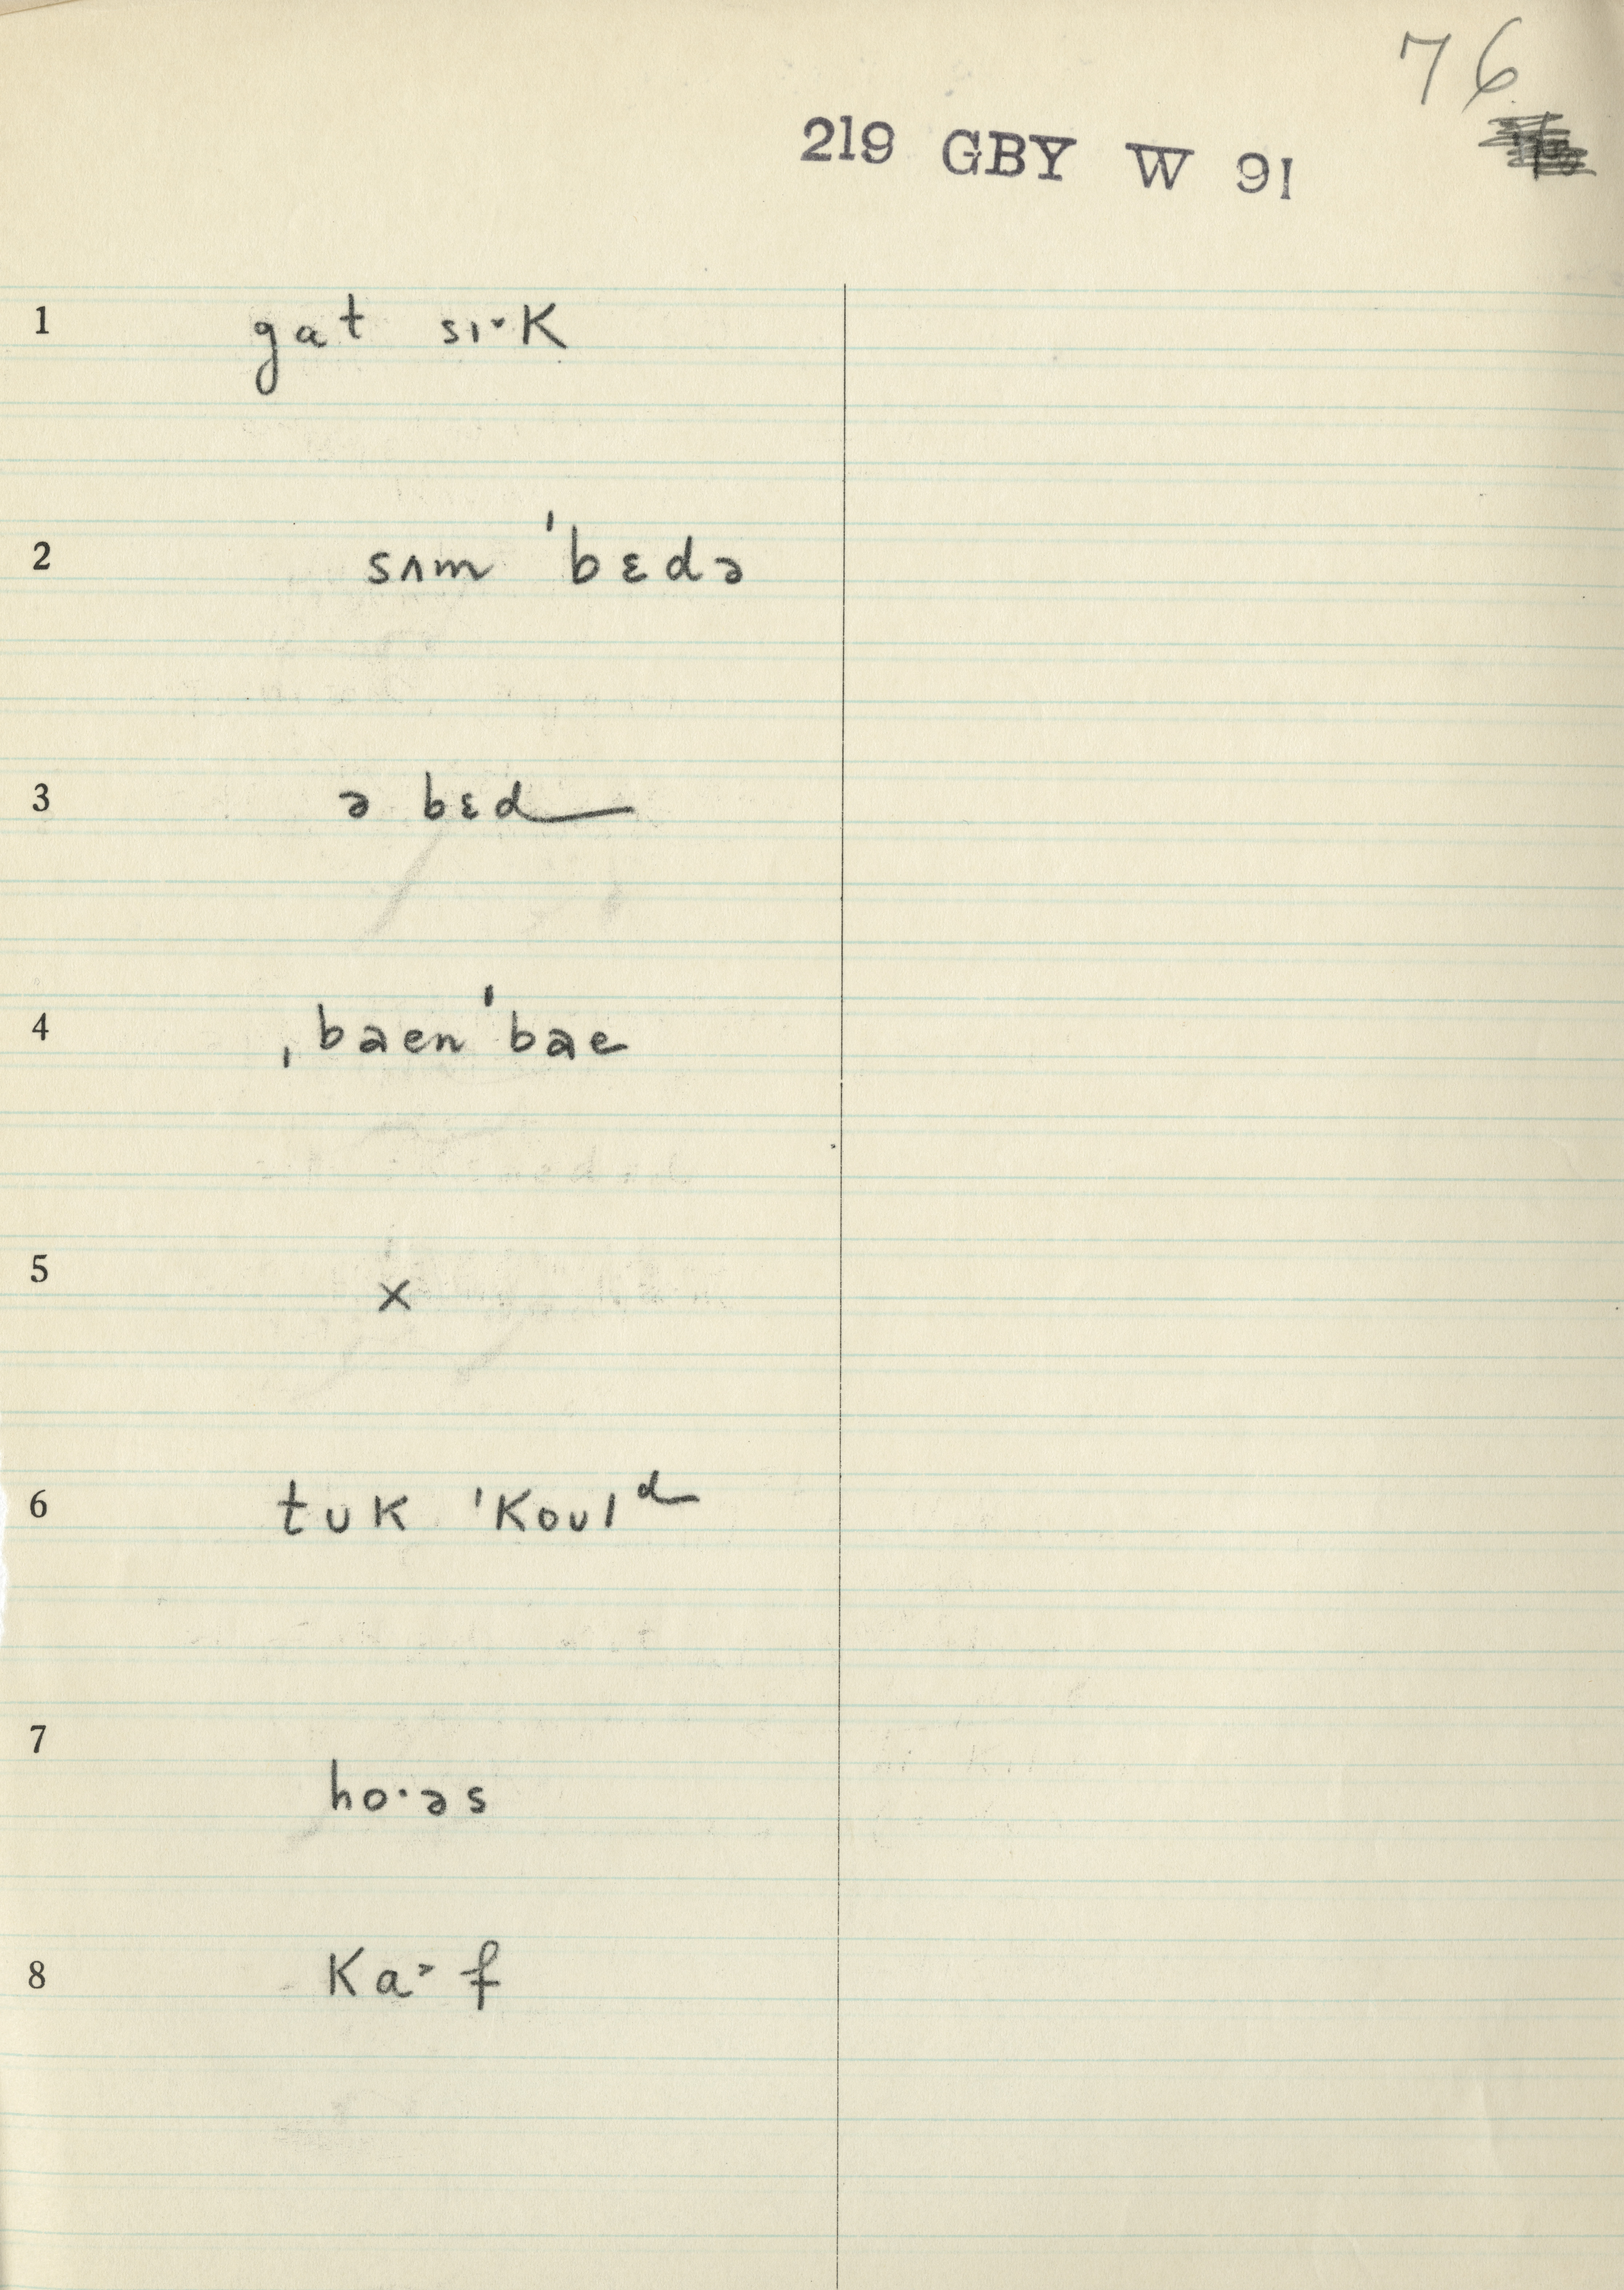 76
219 GBY W 91
1 gat sɪ˞K
2 sʌm ˈbɛdə
3 ə bɛd
4 ˌbaen ˈbae
5 x
6 tʊK ˈKoʊlᵈ
7 ho·əs
8 Ka˃f